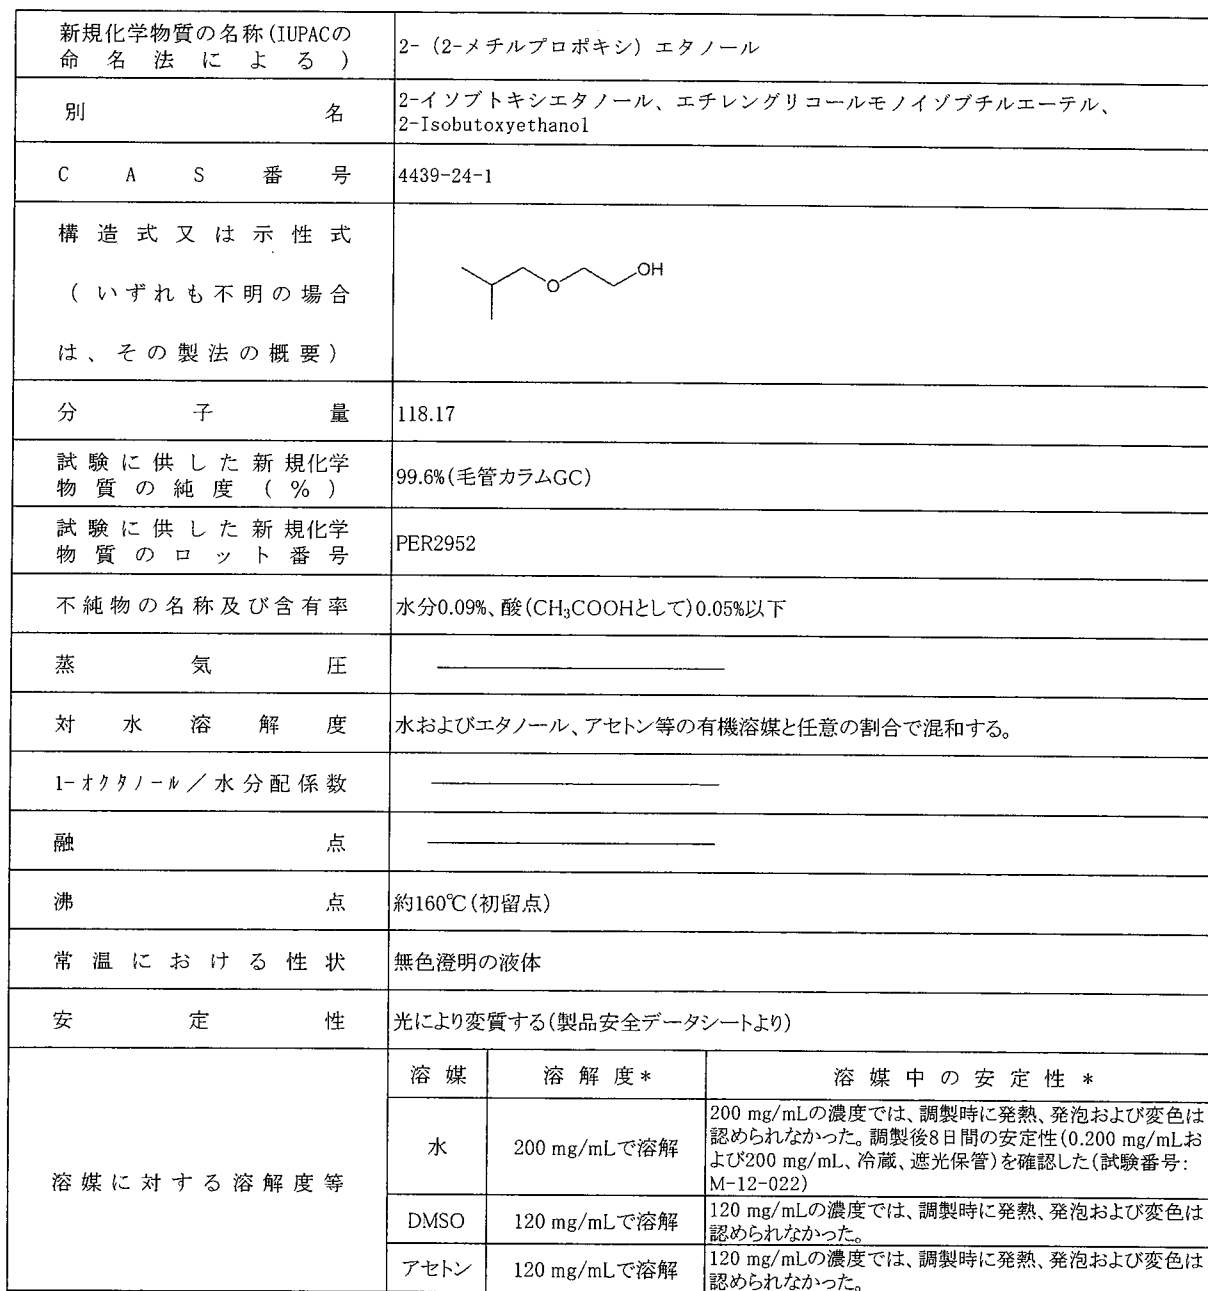 新規化学物質の名称(IUPACの
命名法による)
2-（2-メチルプロポキシ）エタノール
別名
2-イソブトキシエタノール、エチレングリコールモノイゾブチルエーテル、
2-Isobutoxyethanol
CAS番号
4439-24-1
構造式又は示性式
(いずれも不明の場合
は、その製法の概要)
O
OH
分子量
118.17
試験に供した新規化学
物質の純度(%)
99.6%(毛管カラムGC)
試験に供した新規化学
物質のロット番号
PER2952
不純物の名称及び含有率
水分0.09%、酸(CH₃COOHとして)0.05%以下
蒸気圧
対水溶解度
水およびエタノール、アセトン等の有機溶媒と任意の割合で混和する。
1-ｵｸﾀﾉｰﾙ／水分配係数
融点
沸点
約160℃(初留点)
常温における性状
無色澄明の液体
安定性
光により変質する(製品安全データシートより)
溶媒に対する溶解度等
溶媒
溶解度*
溶媒中の安定性*
水
200 mg/mLで溶解
200 mg/mLの濃度では、調製時に発熱、発泡および変色は
認められなかった。調製後8日間の安定性(0.200 mg/mLお
よび200 mg/mL、冷蔵、遮光保管)を確認した(試験番号:
M-12-022)
DMSO
120 mg/mLで溶解
120 mg/mLの濃度では、調製時に発熱、発泡および変色は
認められなかった。
アセトン
120 mg/mLで溶解
120 mg/mLの濃度では、調製時に発熱、発泡および変色は
認められなかった。